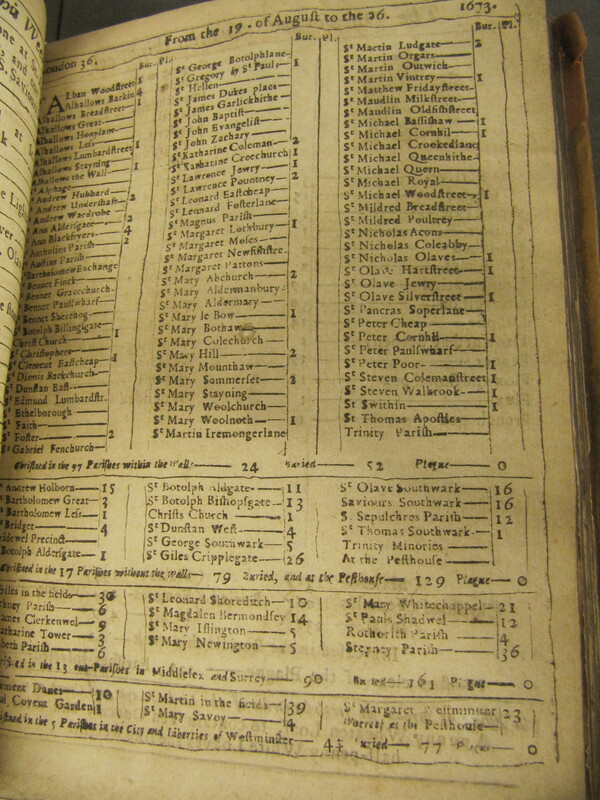 London 36. From the 19. of August to the 26. 1673.
Bur. Pl.
Alban Woodstreet 1
Alhallows Barkin 4
Alhallows Breadstreet 1
Alhallows Great
Alhallows Honylane
Alhallows Less 1
Alhallows Lumbardstreet 1
Alhallows Stayning 1
Alhallows the Wall 1
Sᵗ Alphage
Sᵗ Andrew Hubbard
Sᵗ Andrew Undershaft 2
Sᵗ Andrew Wardrobe
Sᵗ Ann Aldersgate 2
Sᵗ Ann Blackfryers 4
Sᵗ Antholins Parish 2
Sᵗ Austins Parish
Sᵗ Bartholomew Exchange
Sᵗ Bennet Finck
Sᵗ Bennet Gracechurch
Sᵗ Bennet Paulswharf
Sᵗ Bennet Sherehog
Sᵗ Botolph Billingsgate 1
Christ Church
Sᵗ Christophers
Sᵗ Clement Eastcheap 1
Sᵗ Dionis Backchurch
Sᵗ Dunstan East
Sᵗ Edmund Lumbardstr.
Sᵗ Ethelborough
Sᵗ Faith
Sᵗ Foster 2
Sᵗ Gabriel Fenchurch
Bur. Pl.
Sᵗ George Botolphlane
Sᵗ Gregory by Sᵗ Pauls 1
Sᵗ Hellen
Sᵗ James Dukes place
Sᵗ James Garlickhithe
Sᵗ John Baptist
Sᵗ John Evangelist
Sᵗ John Zachary
Sᵗ Katharine Coleman 2
Sᵗ Katharine Creechurch 1
Sᵗ Lawrence Jewry 1
Sᵗ Lawrence Pountney 2
Sᵗ Leonard Eastcheap
Sᵗ Leonard Fosterlane
Sᵗ Magnus Parish
Sᵗ Margaret Lothbury 1
Sᵗ Margaret Moses
Sᵗ Margaret Newfishstre.
Sᵗ Margaret Pattons
Sᵗ Mary Abchurch 2
Sᵗ Mary Aldermanbury
Sᵗ Mary Aldermary
Sᵗ Mary le Bow 1
Sᵗ Mary Bothaw
Sᵗ Mary Colechurch
Sᵗ Mary Hill 2
Sᵗ Mary Mounthaw
Sᵗ Mary Sommerset 2
Sᵗ Mary Stayning
Sᵗ Mary Woolchurch
Sᵗ Mary Woolnoth 1
Sᵗ Martin Iremongerlane
Bur. Pl.
Sᵗ Martin Ludgate 2
Sᵗ Martin Orgars
Sᵗ Martin Outwich
Sᵗ Martin Vintrey 1
Sᵗ Matthew Fridaystreet
Sᵗ Maudlin Milkstreet
Sᵗ Maudlin Oldfishstreet
Sᵗ Michael Bassishaw 1
Sᵗ Michael Cornhil 1
Sᵗ Michael Crookedlane
Sᵗ Michael Queenhithe
Sᵗ Michael Quern
Sᵗ Michael Royal
Sᵗ Michael Woodstreet 1
Sᵗ Mildred Breadstreet
Sᵗ Mildred Poultrey
Sᵗ Nicholas Acons
Sᵗ Nicholas Coleabby
Sᵗ Nicholas Olaves 1
Sᵗ Olave Hartstreet 1
Sᵗ Olave Jewry
Sᵗ Olave Silverstreet 1
Sᵗ Pancras Soperlane
Sᵗ Peter Cheap
Sᵗ Peter Cornhil 1
Sᵗ Peter Paulswharf
Sᵗ Peter Poor 1
Sᵗ Steven Colemanstreet 1
Sᵗ Steven Walbrook 1
St Swithin 1
St Thomas Apostles
Trinity Parish
Christned in the 97 Parishes within the Walls 24 Buried 52 Plague 0
Andrew Holborn 15
Bartholomew Great 3
Bartholomew Less 1
Bridget 4
ridewel Precinct
Botolph Aldersgate 1
Sᵗ Botolph Aldgate 11
Sᵗ Botolph Bishopsgate 13
Christs Church 1
Sᵗ Dunstan West 4
Sᵗ George Southwark 5
Sᵗ Giles Cripplegate 26
Sᵗ Olave Southwark 16
Saviours Southwark 16
S. Sepulchres Parish 12
Sᵗ Thomas Southwark 1
Trinity Minories
At the Pesthouse
Christned in the 17 Parishes without the Walls 79 Buried, and at the Pesthouse 129 Plague 0
iles in the fields 30
ckney Parish 6
ames Clerkenwel 9
atharine Tower 3
beth Parish 6
Sᵗ Leonard Shoreditch 10
Sᵗ Magdalen Bermondsey 14
Sᵗ Mary Islington 5
Sᵗ Mary Newington 5
Sᵗ Mary Whitechappel 21
Sᵗ Pauls Shadwel 12
Rotherith Parish 4
Stepney Parish 36
ristned in the 13 out-Parishes in Middlesex and Surrey 90 Buried 161 Plague 0
ement Danes 10
Covent Garden 1
Sᵗ Martin in the fields 39
Sᵗ Mary Savoy 4
Sᵗ Margaret Westminster 23
Whereof at the Pesthouse
istned in the 5 Parishes in the City and Liberties of Westminster 44 Buried 77 Plague 0